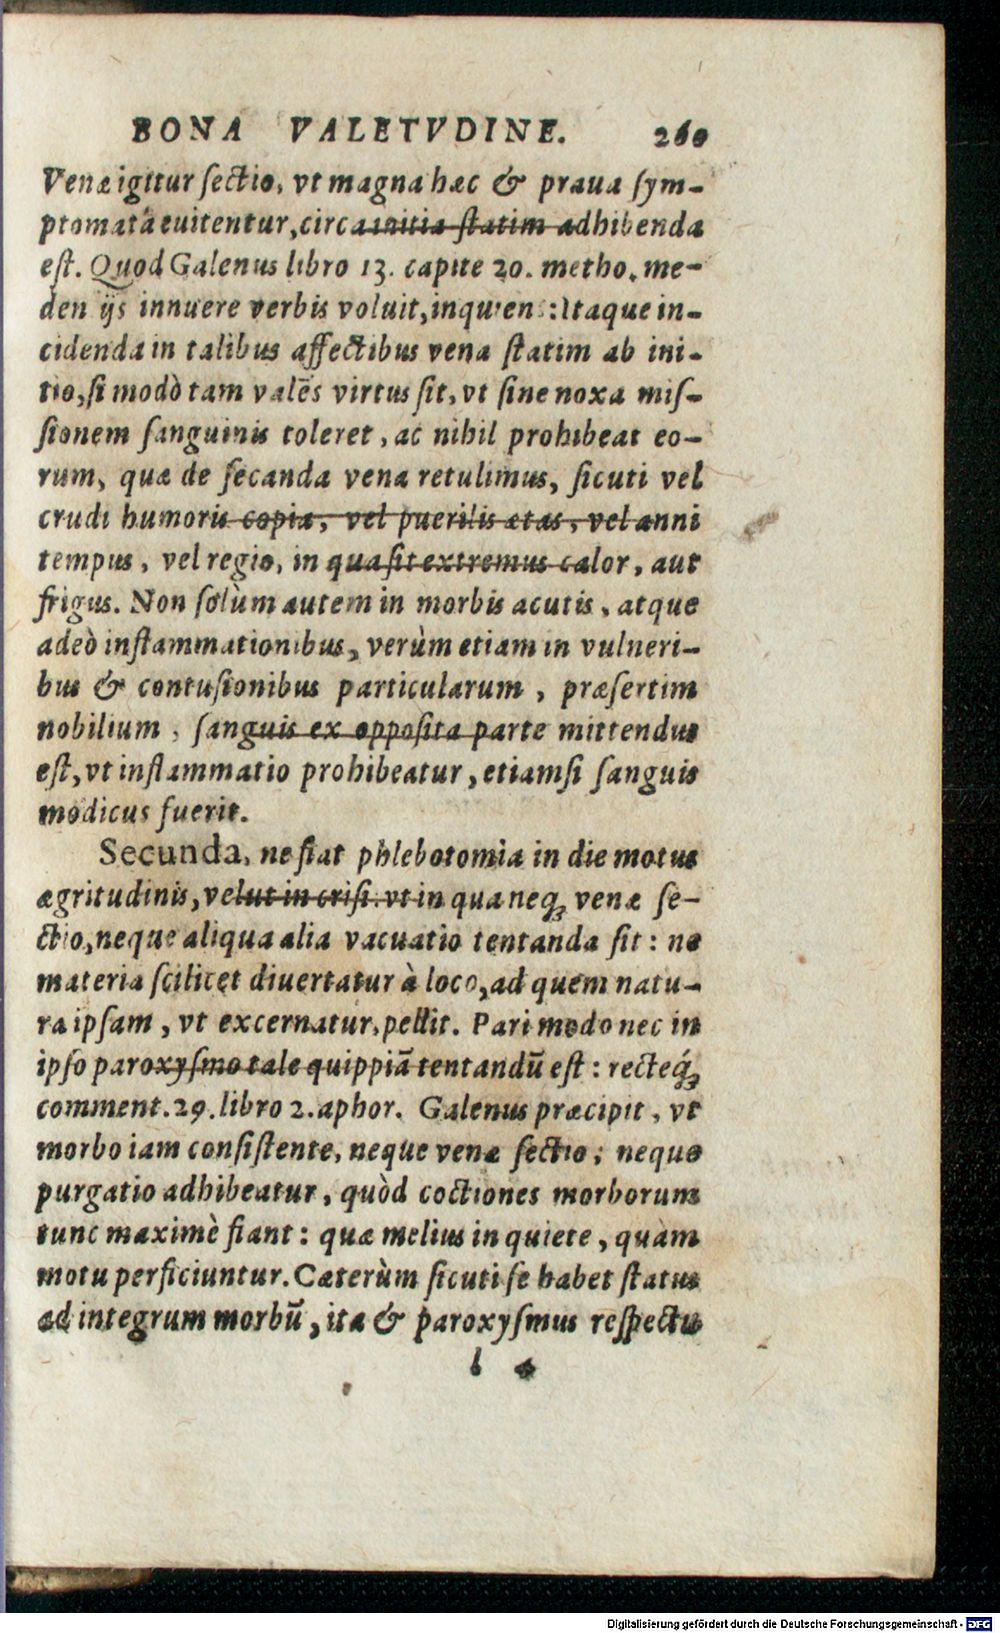 BONA VALETVDINE. 260
Venæ igitur sectio, vt magna hæc & praua sym-
ptomata euitentur, circa initia statim adhibenda
est. Quod Galenus libro 13. capite 20. metho. me-
den ijs innuere verbis voluit, inquiens: Itaque in-
cidenda in talibus affectibus vena statim ab ini-
tio, si modò tam valēs virtus sit, vt sine noxa mis-
sionem sanguinis toleret, ac nihil prohibeat eo-
rum, quæ de secanda vena retulimus, sicuti vel
crudi humoris copia, vel puerilis ætas, vel anni
tempus, vel regio, in qua sit extremus calor, aut
frigus. Non solùm autem in morbis acutis, atque
adeò inflammationibus, verùm etiam in vulneri-
bus & contusionibus particularum, præsertim
nobilium, sanguis ex opposita parte mittendus
est, vt inflammatio prohibeatur, etiamsi sanguis
modicus fuerit.
Secunda, ne fiat phlebotomia in die motus
ægritudinis, velut in crisi: vt in qua neq; venæ se-
ctio, neque aliqua alia vacuatio tentanda sit: ne
materia scilicet diuertatur à loco, ad quem natu-
ra ipsam, vt excernatur, pellit. Pari modo nec in
ipso paroxysmo tale quippiā tentandū est: recteq́;
comment. 29. libro 2. aphor. Galenus præcipit, vt
morbo iam consistente, neque venæ sectio, neque
purgatio adhibeatur, quòd coctiones morborum
tunc maximè fiant: quæ melius in quiete, quàm
motu perficiuntur. Cæterùm sicuti se habet status
ad integrum morbū, ita & paroxysmus respectu
l 4
Digitalisierung gefördert durch die Deutsche Forschungsgemeinschaft - DFG